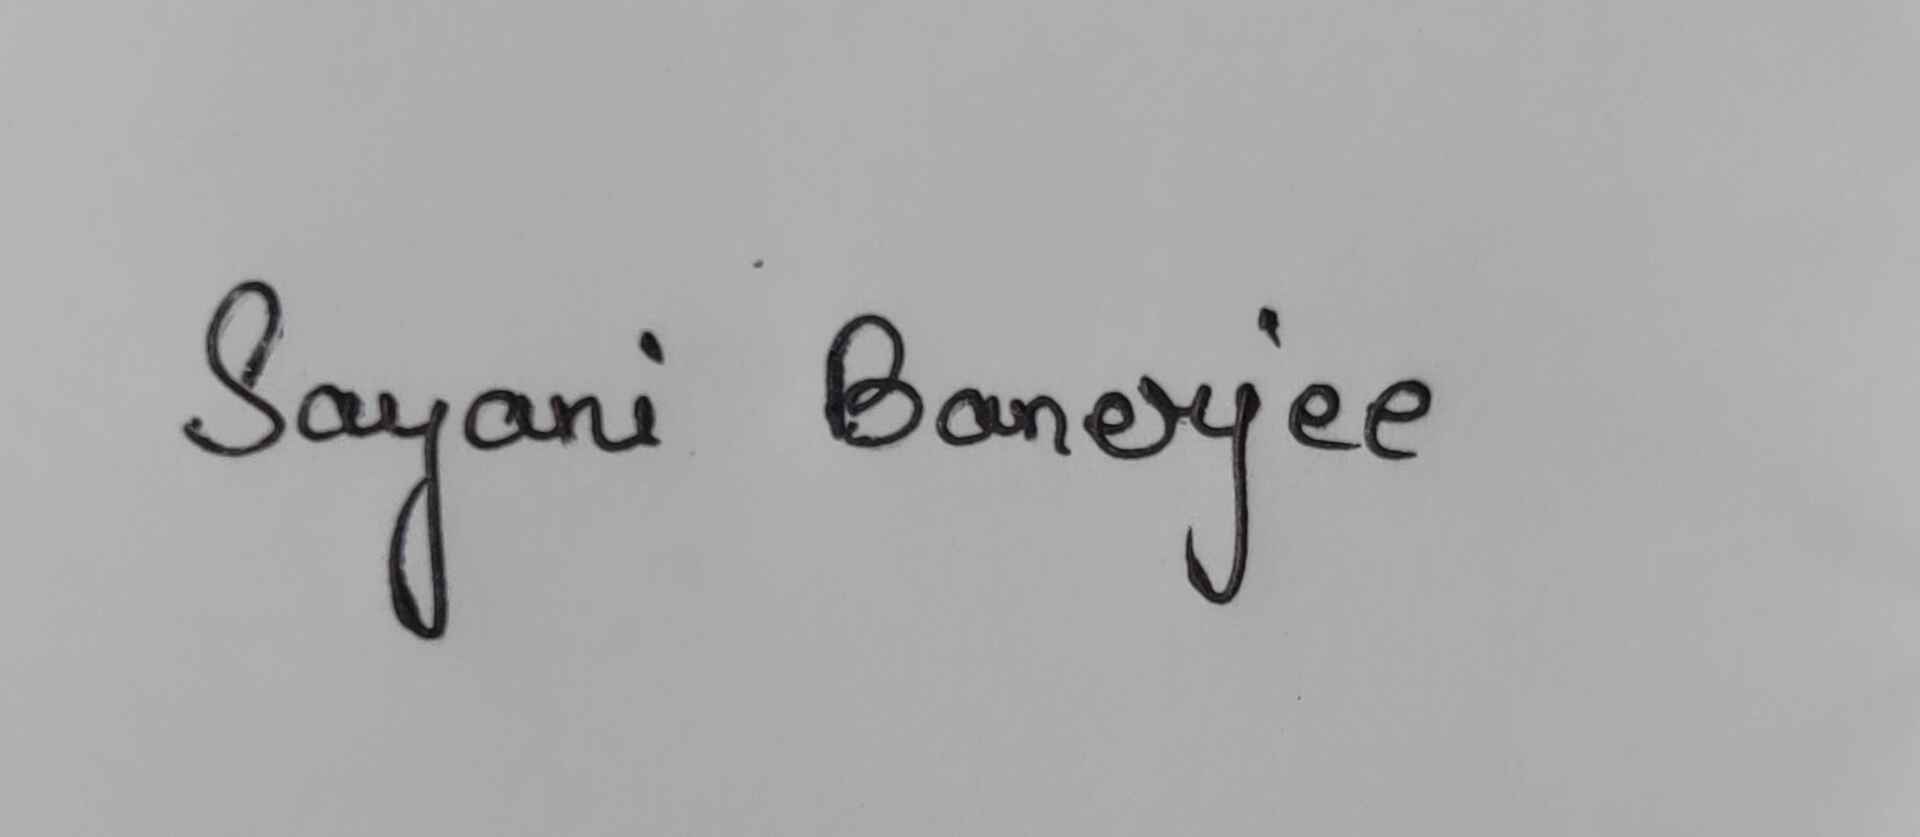 Sayani Banerjee